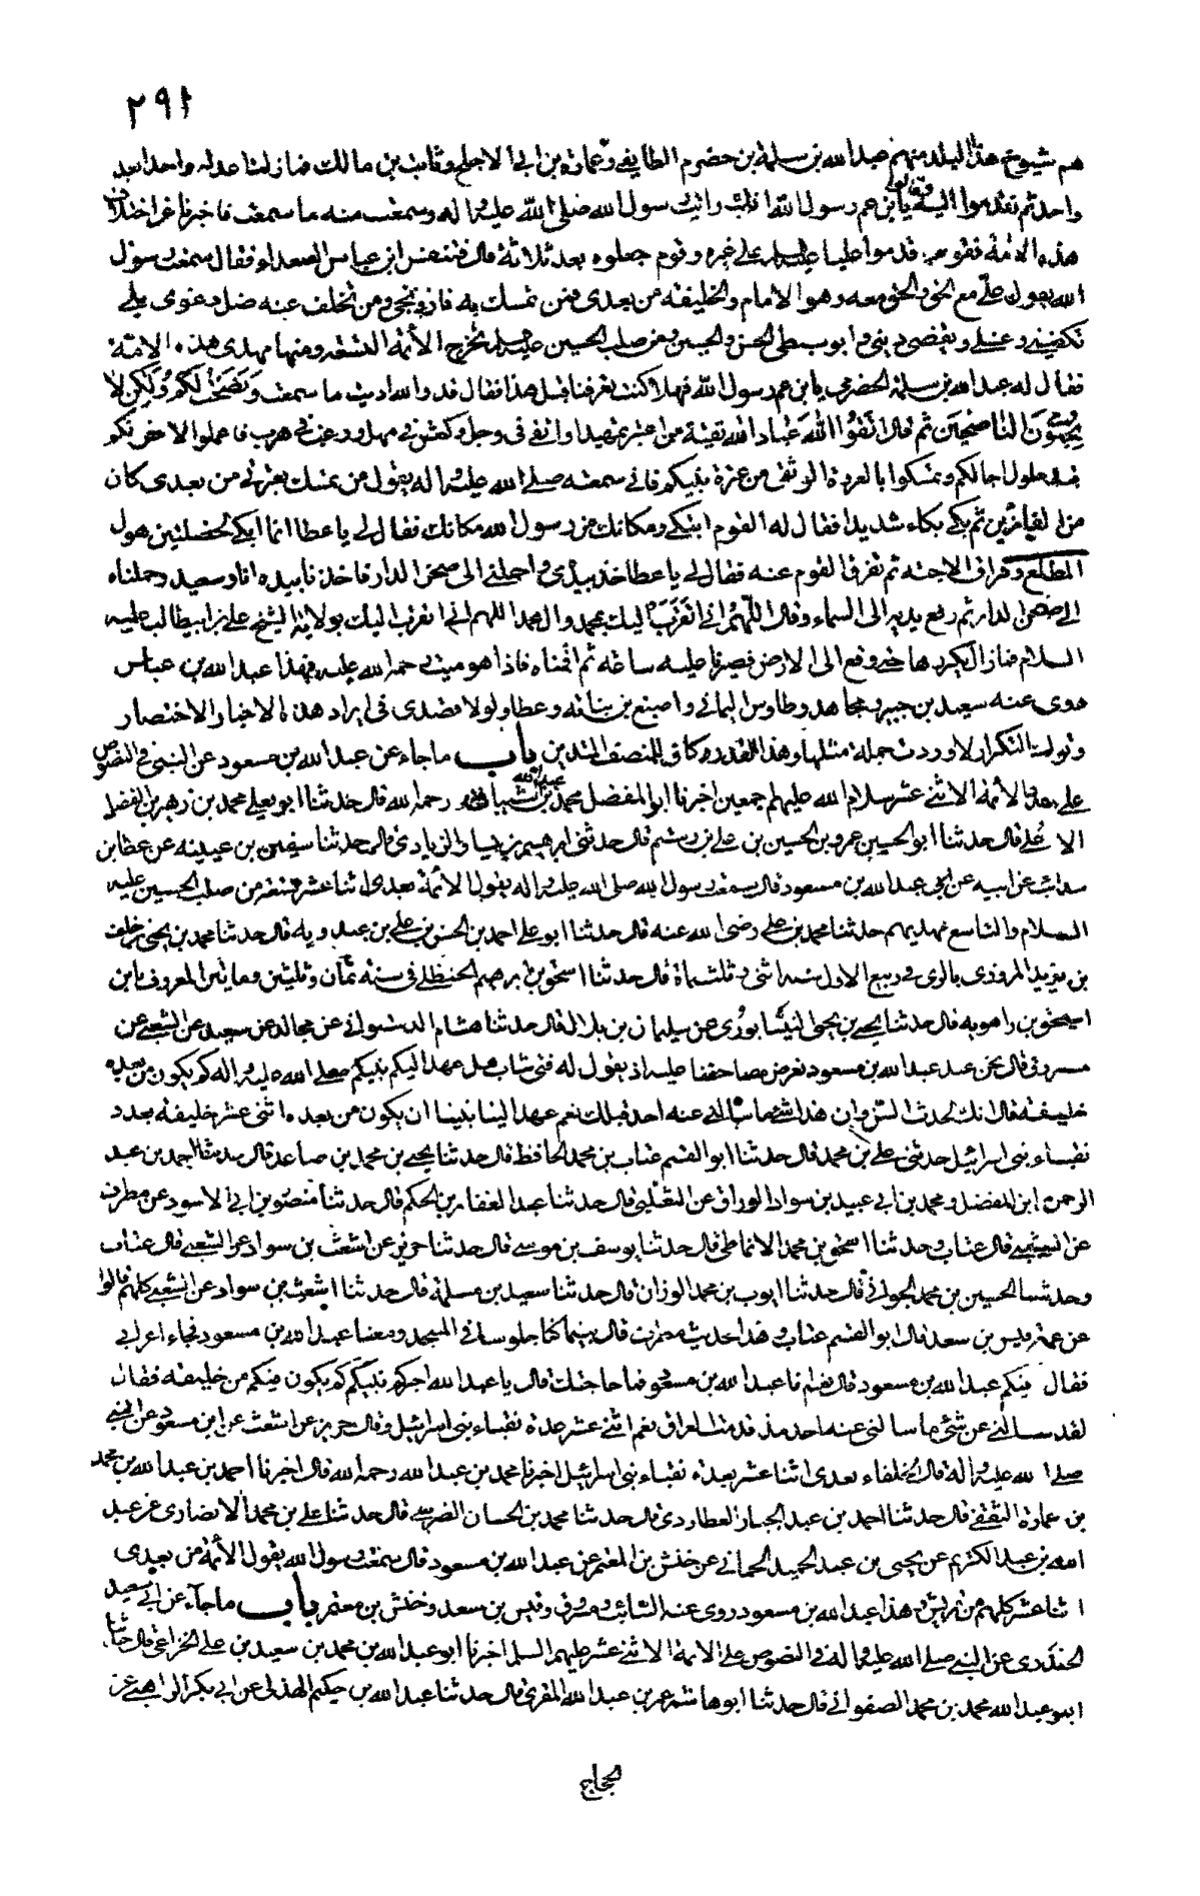 ٢٩١
هم شيوخ هذا البلد منهم عبد الله بن سلمة بن حضرم الطايفي وعمارة بن ابي الاجلح وثابت بن مالك فما زلنا عد له واحدا بعد
واحد ثم تقدموا اليه وقالوا يا بن عم رسول الله انك رايت رسول الله صلى الله عليه واله وسمعت منه ما سمعت فاخبرنا عن اختلاف
هذه الامة فقوم قد قدموا عليا عليه السلام على غيره وقوم جعلوه بعد ثلاثة قال فتنفس ابن عباس الصعداء فقال سمعت رسول
الله يقول علي مع الحق والحق معه وهو الامام والخليفة من بعدي فمن تمسك به فاز ونجى ومن تخلف عنه ضل وغوى يلي
تكفيني وغسلي ويقضي ديني وابو سبطي الحسن والحسين ومن صلب الحسين عليه السلام تخرج الأئمة التسعة ومنها مهدي هذه الامة
فقال له عبد الله بن سلمة الحضرمي يا بن عم رسول الله فهلا كنت تعرفنا قبل هذا فقال قد والله اديت ما سمعت وَنَصَحْتُ لَكُمْ وَلَكِنْ لَا
تُحِبُّونَ النَّاصِحِينَ ثم قال اتَّقُوا الله عباد الله تقية من اعتبر تمهيدا وابقى في وجل وكمش في مهل ورغب في هرب فاعملوا لاخرتكم
قبل حلول اجالكم وتمسكوا بالعروة الوثقى من عترة نبيكم فاني سمعته صلى الله عليه واله يقول من تمسك بعترتي من بعدي كان
من الفائزين ثم بكى بكاء شديدا فقال له القوم اتبكي ومكانك من رسول الله مكانك فقال لي يا عطا انما ابكي لخصلتين هول
المطلع وفراق الاحبة ثم تفرق القوم عنه فقال لي يا عطا خذ بيدي واحملني الى صحن الدار فاخذنا بيده انا وسعيد وحملناه
الى صحن الدار ثم رفع يديه الى السماء وقال اللّهُمَّ اني اتقرب اليك بمحمد وال محمد اللهم اني اتقرب اليك بولاية الشيخ علي بن ابيطالب عليه
السلام فما زال يكررها حتى وقع الى الارض فصبرنا عليه ساعة ثم اقمناه فاذا هو ميت رحمه الله عليه فهذا عبد الله بن عباس
روى عنه سعيد بن جبير ومجاهد وطاوس اليماني واصبغ بن نباته وعطا ولولا قصدي في ايراد هذه الاخبار الاختصار
وترك التكرار لاوردت جملة مثلها وهذا القدر كاف للمنصف المتدين باب ما جاء عن عبد الله بن مسعود عن النبي في النصوص
على الأئمة الاثني عشر سلام الله عليهم اجمعين اخبرنا ابو المفضل محمد بن عبد الله الشيباني رحمه الله قال حدثنا ابو يعلى محمد بن زهير بن الفضل
الابلي قال حدثنا ابو الحسين عمرو بن الحسين بن علي بن رستم قال حدثني ابرهيم بن يسار الزيادي قال حدثنا سفين بن عيينه عن عطا بن
سائب عن ابيه عن عبد الله بن مسعود قال سمعت رسول الله صلى الله عليه واله يقول الأئمة بعدي اثنا عشر تسعة من صلب الحسين عليه
السلام والتاسع مهديهم حدثنا محمد بن علي رضي الله عنه قال حدثنا ابو علي احمد بن الحسن بن علي بن عبدويه قال حدثنا محمد بن يحيى بن خلف
بن يزيد المروزي بالري في ربيع الاول سنة اثني وثلثماة قال حدثنا اسحق بن ابرهيم الحنظلي في سنة ثمان وثلثين ومائتين المعروف بابن
اسحق بن راهويه قال حدثنا يحيى بن يحيى النيسابوري عن سليمان بن بلال قال حدثنا هشام الدستواني عن مجالد عن سعيد عن الشعبي عن
مسروق قال نحن عند عبد الله بن مسعود نعرض مصاحفنا عليه اذ يقول له فتى شاب هل عهد اليكم نبيكم صلى الله عليه واله كم يكون من بعده
خليفة قال انك لحدث السن وان هذا شئ ما سألني عنه احد قبلك نعم عهد الينا نبينا ان يكون من بعده اثنى عشر خليفة بعدد
نقباء بني اسرائيل حدثني علي بن محمد قال حدثنا ابو القسم عتاب بن محمد الحافظ قال حدثنا يحيى بن محمد بن صاعد قال حدثنا احمد بن عبد
الرحمن ابن المفضل ومحمد بن ابي عبيد بن سواد الوراق عن التغلبي قال حدثنا عبد الغفار بن الحكم قال حدثنا منصور بن ابي الاسود عن مطرف
عن الشعبي قال عتاب وحدثنا اسحق بن محمد الانماطي قال حدثنا يوسف بن موسى قال حدثنا جرير عن اشعث بن سواد عن الشعبي قال عتاب
وحدثنا الحسين بن محمد الحواني قال حدثنا ايوب بن محمد الوزان قال حدثنا سعيد بن مسلمة قال حدثنا اشعث بن سواد عن الشعبي كلهم قالوا
عن عمه قيس بن سعد قال ابو القسم عتاب وهذا حديث مطرف قال بينما كنا جلوسا في المسجد ومعنا عبد الله بن مسعود فجاء اعرابي
فقال فيكم عبد الله بن مسعود قال نعم انا عبد الله بن مسعود فما حاجتك قال يا عبد الله اخبركم نبيكم كم يكون فيكم من خليفة فقال
لقد سالتني عن شئ ما سالني عنه احد منذ قدمت العراق نعم اثني عشر عدة نقباء بني اسرائيل وقال جرير عن اشعث عن ابن مسعود عن النبي
صلى الله عليه واله قال الخلفاء بعدي اثنا عشر بعدة نقباء بني اسرائيل اخبرنا محمد بن عبد الله رحمه الله قال اخبرنا احمد بن عبد الله بن محمد
بن عمارة الثقفي قال حدثنا احمد بن عبد الجبار العطاردي قال حدثنا محمد بن الحسان الضرسي قال حدثنا علي بن محمد الانصاري عن عبد
الله بن عبد الكريم عن يحيى بن عبد الحميد الحماني عن حنش بن المعتمر عن عبد الله بن مسعود قال سمعت رسول الله يقول الأئمة من بعدي
اثنا عشر كلهم من قريش وهذا عبد الله بن مسعود روى عنه السائب ومسروق وقيس بن سعد وحنش بن معتمر باب ما جاء عن ابي سعيد
الخدري عن النبي صلى الله عليه واله في النصوص على الائمة الاثني عشر عليهم السلم اخبرنا ابو عبد الله بن محمد بن سعيد بن علي الخزاعي قال حدثنا
ابو عبد الله محمد بن محمد الصفواني قال حدثنا ابو هاشم عمر بن عبد الله المقري قال حدثنا عبد الله بن حكيم الهذلي عن ابي بكر الراهبي عن
الحجاج